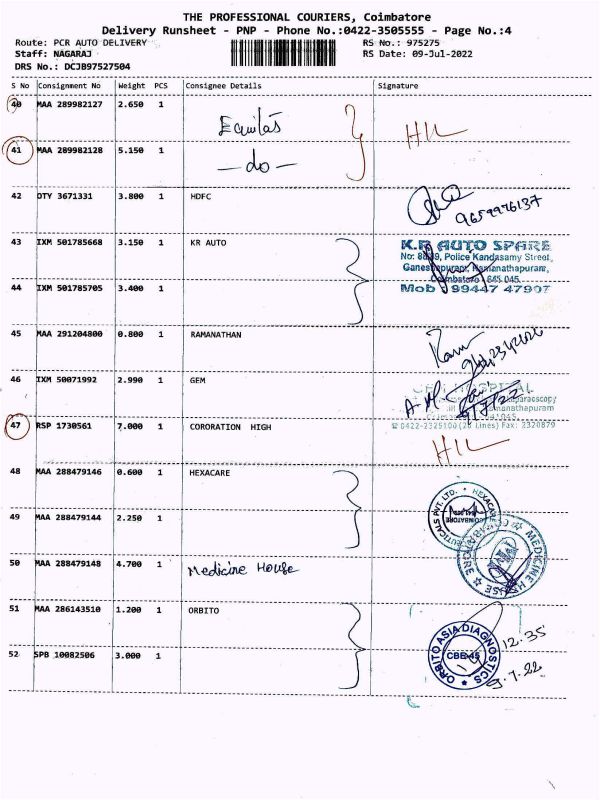 THE PROFESSIONAL COURIERS, Coimbatore
Delivery Runsheet - PNP - Phone No.:0422-3505555 - Page No.:4
Route: PCR AUTO DELIVERY RS No.: 975275
Staff: NAGARAJ RS Date: 09-Jul-2022
DRS No.: DCJB97527504
S No Consignment No Weight PCS Consignee Details Signature
40 MAA 289982127 2.650 1 Equitas
HIL
41 MAA 289982128 5.150 1 - do -
42 OTY 3671331 3.800 1 HDFC
43 IXM 501785668 3.150 1 KR AUTO K.R AUTO SPARE
Police Kandasamy Street,
Ramanathapuram,
44 IXM 501785705 3.400 1 Coimbatore 641 045
Mob 99447 47907
45 MAA 291204800 0.800 1 RAMANATHAN Ram
46 IXM 50071992 2.990 1 GEM HOSPITAL
9/7/22
47 RSP 1730561 7.000 1 CORORATION HIGH 0422-2325100 (20 Lines) Fax: 2320879
HIL
48 MAA 288479146 0.600 1 HEXACARE
49 MAA 288479144 2.250 1
50 MAA 288479148 4.700 1 Medicine House
51 MAA 286143510 1.200 1 ORBITO ORBITO ASIA DIAGNOSTICS
CBE-45
12.35
52 SPB 10082506 3.000 1 9.7.22